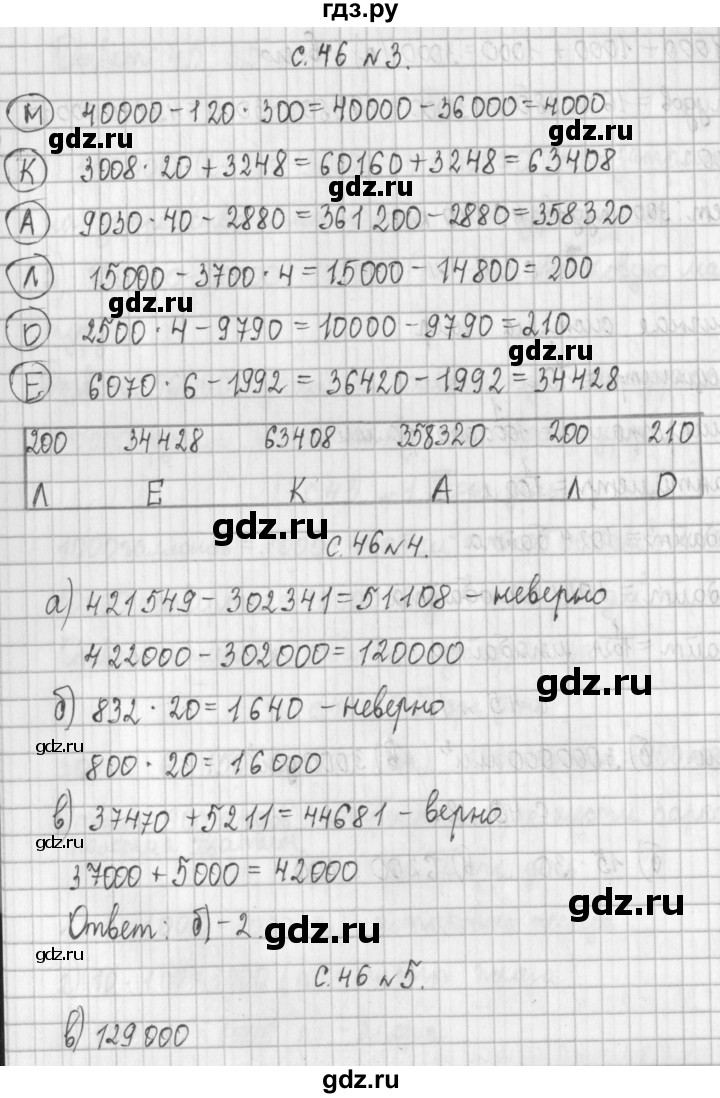 гдз.ру
с. 46 №3.
М 40000-120·300=40000-36000=4000
gdz.ru
gdz.ru
К 3008·20+3248=60160+3248=63408
gdz.ru
А 9030·40-2880=361200-2880=358320
Л 15000-3700·4=15000-14800=200
gdz.ru
О 2500·4-9790=10000-9790=210
gdz.ru
Е 6070·6-1992=36420-1992=34428
200 34428 63408 358320 200 210
Л Е К А Л О
gdz.ru
с. 46 №4.
а) 421549-302341=51108 - неверно
422000-302000=120000
gdz.ru
б) 832·20=1640 - неверно
gdz.ru
800·20=16000
в) 37470+5211=44681 - верно
gdz.ru
37000+5000=42000
gdz.ru
Ответ: б)-2
gdz.ru
gdz.ru
с. 46 №5.
в) 129000
gdz.ru
gdz.ru